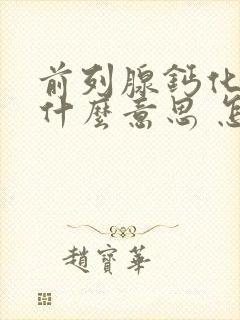 前列腺鈣化
什麼意思 怎
趙寶華